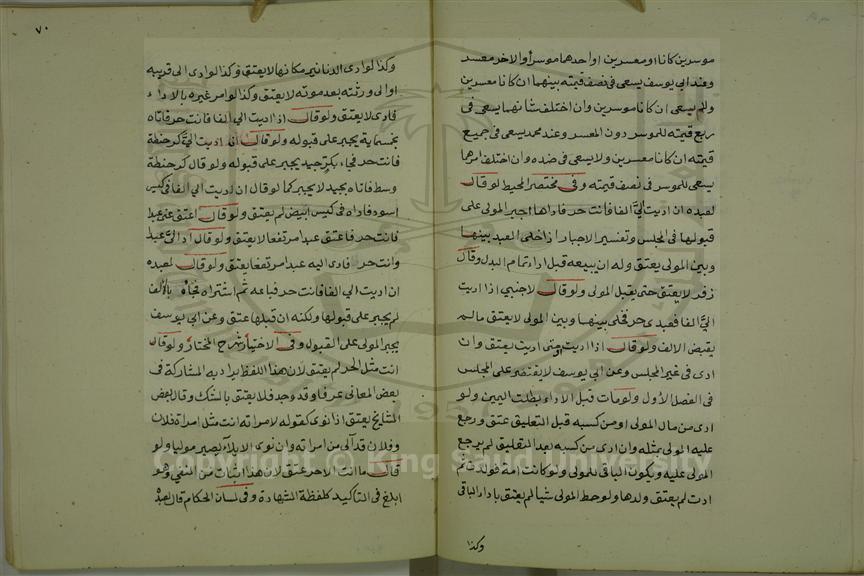 موسرين كانا او معسرين او احدهما موسرا والاخر معسر
وعند ابي يوسف يسعى في نصف قيمته بينهما ان كانا معسرين
ولم يسعى ان كانا موسرين وان اختلف شانهما يسعى في
ربع قيمته للموسر دون المعسر وعند محمد يسعى في جميع
قيمته ان كانا معسرين ولا يسعى في ضده وان اختلف امرهما
يسعى للموسر في نصف قيمته وفي مختصر المحيط لو قال
لعبده ان اديت الي الفا فانت حر فاداها اجبر المولى على
قبولها في المجلس وتفسير الاجبار اذا خلى العبد بينهما
وبين المولى يعتق وله ان يبيعه قبل اداء تمام البدل وقال
زفر لا يعتق حتى يقبل المولى ولو قال لاجنبي اذا اديت
الي الفا فعبدي حر فخلى بينهما وبين المولى لا يعتق مالم
يقبض الالف ولو قال اذا اديت او متى اديت يعتق وان
ادى في غير المجلس وعن ابي يوسف لا يقتصر على المجلس
في الفصل الاول ولو مات قبل الاداء بطلت اليمين ولو
ادى من مال المولى او من كسبه قبل التعليق عتق ورجع
عليه المولى بمثله وان ادى من كسبه بعد التعليق لم يرجع
المولى عليه ويكون الباقي للمولى ولو كانت امة فولدت ثم
ادت لم يعتق ولدها ولو حط المولى شيا لم يعتق باداء الباقي
وكذا
٧٠
وكذا لو ادى الدنانير مكانها لا يعتق وكذا لو ادى الى قريبه
او الى ورثته بعد موته لا يعتق وكذا لو امر غيره بالاداء
فادى لا يعتق ولو قال اذا اديت الي الفا فانت حر فاتاه
بخمسماية يجبر على قبوله ولو قال ان اديت الي كر حنطة
فانت حر فجاء بكر جيد يجبر على قبوله ولو قال كر حنطة
وسط فاتاه بجيد لا يجبر كما لو قال ان اديت الي الفا في كيس
اسود فاداه في كيس ابيض لم يعتق ولو قال اعتق عني عبدا
فانت حر فاعتق عبدا مرتفعا لا يعتق ولو قال اد الي عبدا
وانت حر فادى اليه عبدا مرتفعا يعتق ولو قال لعبده
ان اديت الي الفا فانت حر فباعه ثم اشتراه فجاء بالالف
لم يجبر على قبولها ولكنه ان قبلها عتق وعن ابي يوسف
يجبر المولى على القبول وفي الاختيار شرح المختار ولو قال
انت مثل الحر لم يعتق لان هذا اللفظ يراد به المشاركة في
بعض المعاني عرفا وقد وجد فلا يعتق بالشك وقال بعض
المشايخ يعتق اذا نوى كقوله لامراته انت مثل امراة فلان
وفلان قد آلى من امراته وان نوى الايلاء يصير موليا ولو
قال ما انت الا حر عتق لان هذا اثبات من النفي وهو
ابلغ في التاكيد كلفظة الشهادة وفي لسان الحكام قال لعبده
Copyright © King Saud University
1957